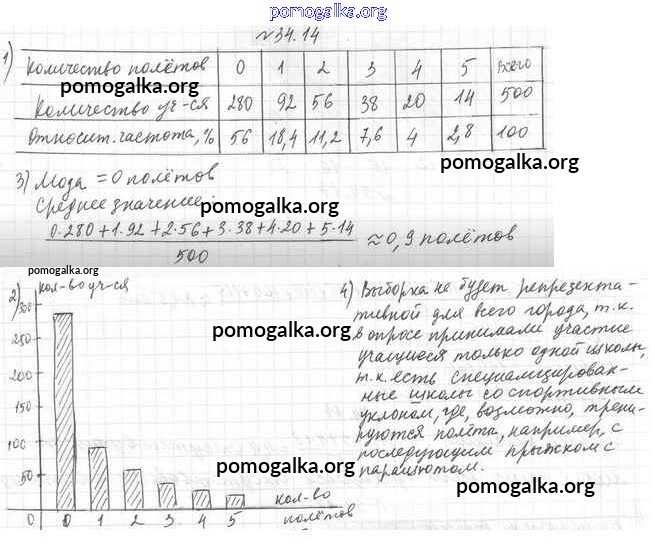 pomogalka.org
№34.14
1) Количество полётов 0 1 2 3 4 5 Всего
pomogalka.org
Количество уч-ся 280 92 56 38 20 14 500
Относит. частота, % 56 18,4 11,2 7,6 4 2,8 100
pomogalka.org
3) Мода = 0 полётов
Среднее значение:
pomogalka.org
0·280+1·92+2·56+3·38+4·20+5·14
500
≈0,9 полётов
pomogalka.org
2) кол-во уч-ся
300
250
200
150
100
50
0
0 1 2 3 4 5
кол-во
полётов
pomogalka.org
pomogalka.org
4) Выборка не будет репрезента-
тивной для всего города, т.к.
в опросе принимали участие
учащиеся только одной школы,
т.к. есть специализирован-
ные школы со спортивным
уклоном, где, возможно, трени-
руются полёта, например, с
последующим прыжком с
парашютом.
pomogalka.org